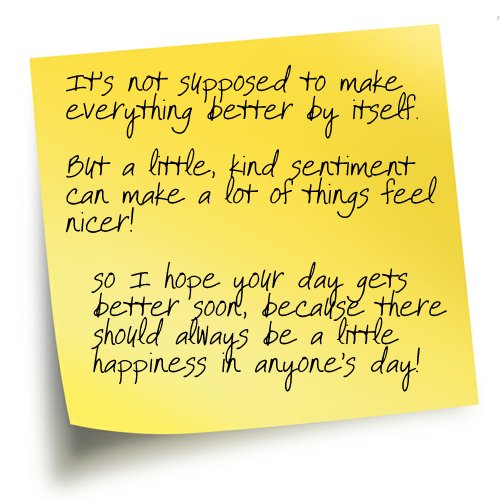 It's not supposed to make
everything better by itself.
But a little, kind sentiment
can make a lot of things feel
nicer!
so I hope your day gets
better soon, because there
should always be a little
happiness in anyone's day!